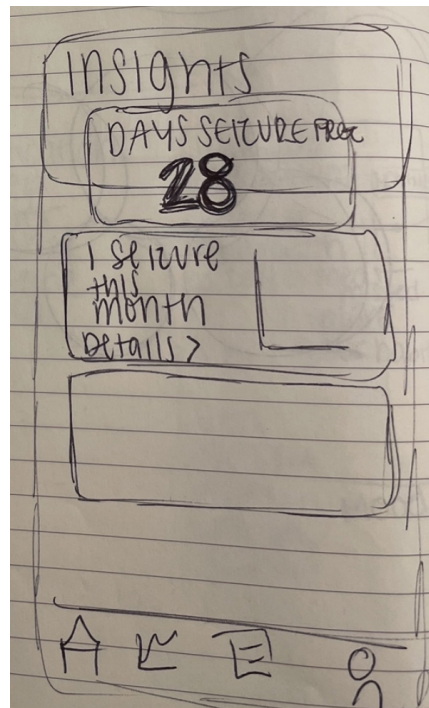 Insights
DAYS SEIZURE FREE
28
1 Seizure
this
month
Details >